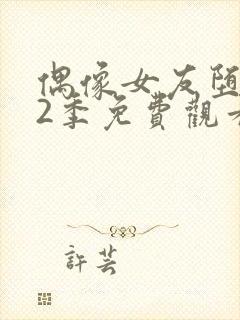 偶像女友堕
2季免費觀看
許芸